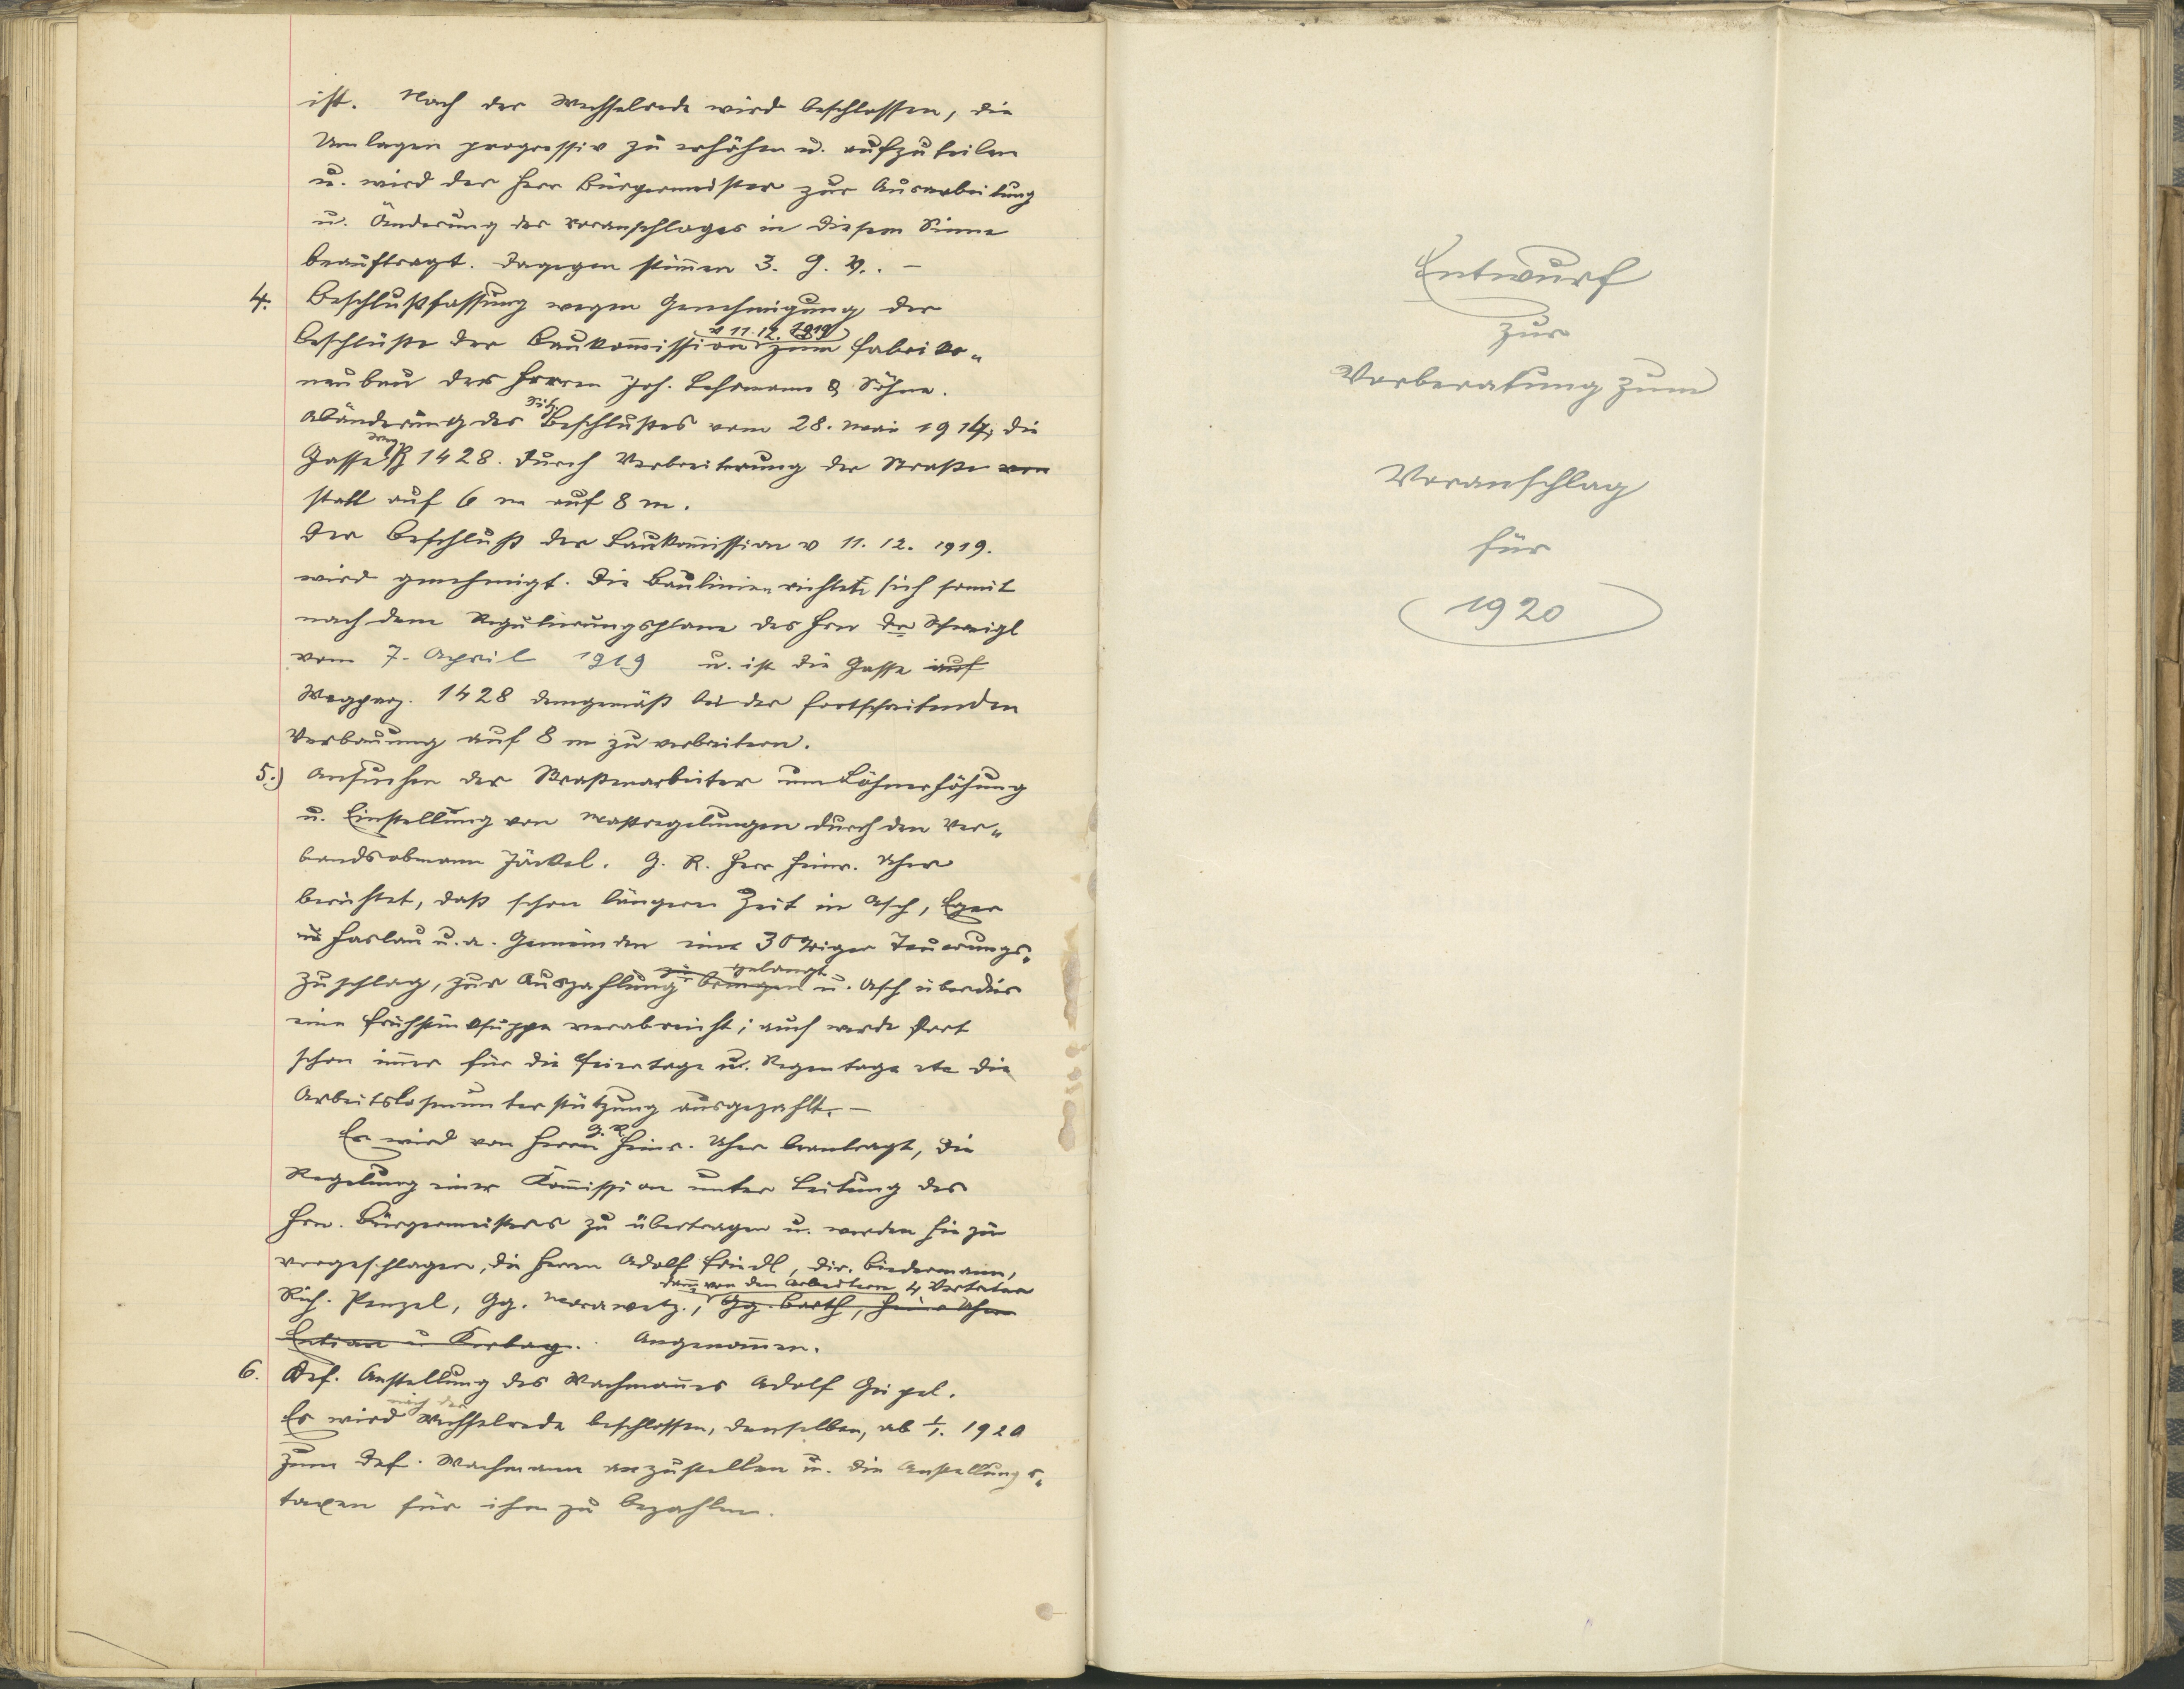 ist. Nach der Wechselrede wird beschlossen, die
Umlagen progressiv zu erhöhen u. aufzuteilen
u. wird der Herr Bürgermeister zur Ausarbeitung
u. Änderung des Voranschlages in diesem Sinne
beauftragt. Dagegen stimmen 3. G. V. –
4. Beschlußfassung wegen Genehmigung der
Beschlüße der Baukommission v 11.12.1919 zum Fabriks-
neubau der Herren Joh. Lehrmann & Söhne.
Abänderung des Sitz. Beschlußes vom 28. Mai 1914, die
Gasse Weg P 1428. durch Verbreiterung der Straße von
statt auf 6 m auf 8 m.
Der Beschluß der Baukommission v 11. 12. 1919.
wird genehmigt. Die Baulinien richtet sich somit
nach dem Regulierungsplane des Hrn Dr Schweigl
vom 7. April 1919 u. ist die Gasse auf
Wegparz. 1428 demgemäß bei der fortschreitenden
Verbauung auf 8 m zu verbreitern.
5.) Ansuchen der Straßenarbeiter um Löhnerhöhung
u. Einstellung von Maßregelungen durch den Ver-
bandsobmann Jäckel. G. R. Herr Heinr. Uher
berichtet, daß schon längere Zeit in Asch, Eger
u Haslau u. a. Gemeinden eine 30%iger Teuerungs-
zuschlag, zur Auszahlung gelangt bringen u. Asch überdies
eine Frühstücksuppe verabreicht; auch werde dort
schon immer für die Feiertage u. Regentage etc die
Arbeitslosenunterstützung ausgezahlt. –
Es wird von Herrn G. R. Heinr. Uher beantragt, die
Regelung einer Kommission unter Leitung des
Hrn. Bürgermeisters zu übertragen u. werden hiezu
vorgeschlagen, die Herren Adolf Friedl, Dir. Biedermann,
dann von den Arbeitern 4 Vertreter
Rich. Penzel, Gg. Morawetz., Gg. Barth, Heinr Uher
Angenommen.
6. Def. Anstellung des Wachmannes Adolf Geipel.
Es wird nach der Wechselrede beschlossen, denselben, ab 1/1. 1920
zum def. Wachmann anzustellen u. die Anstellungs-
taxen für ihn zu bezahlen.
Entwurf
zur
Vorberatung zum
Voranschlag
für
1920